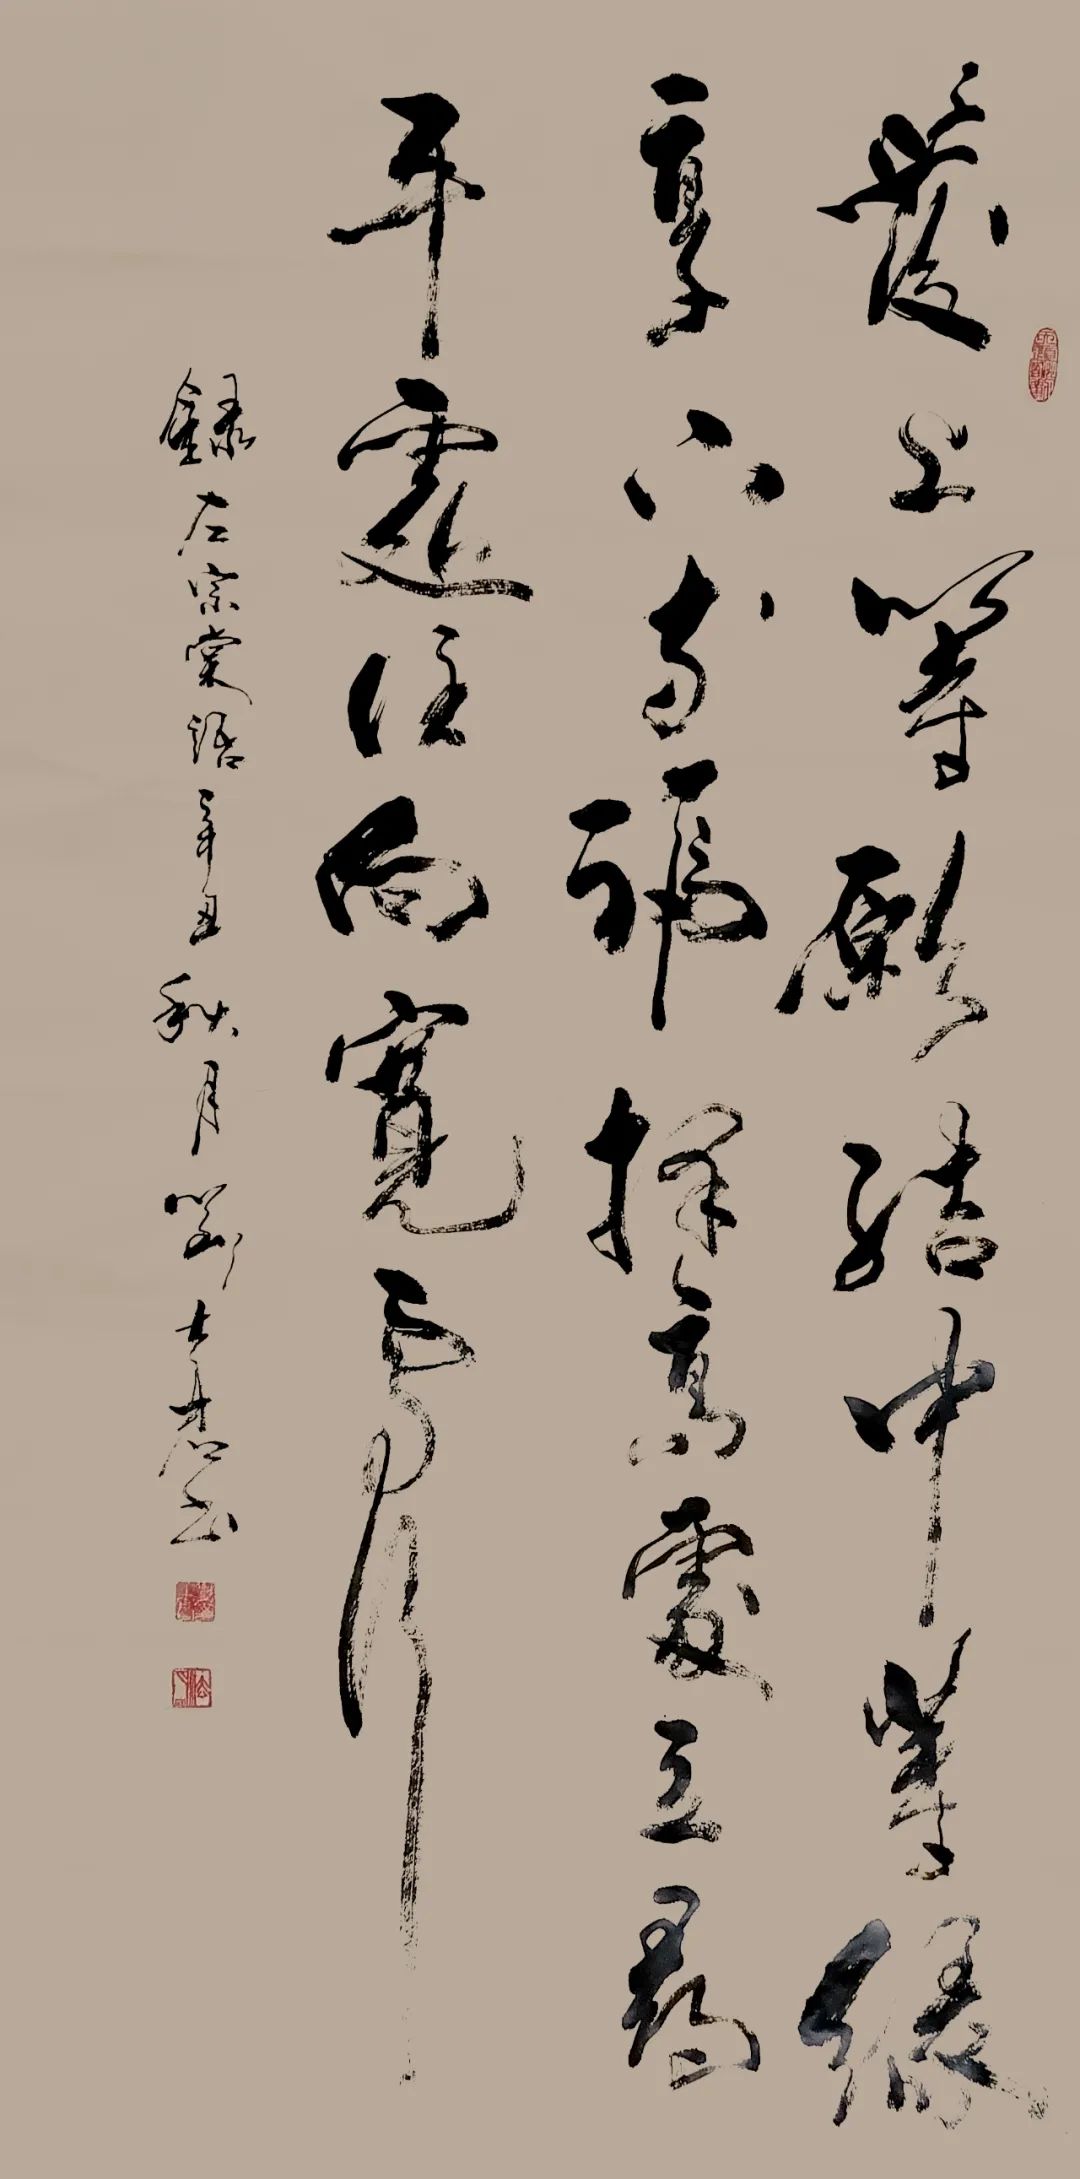 發上等願結中等緣
享下等福擇高處立尋
平處住向寬處行
錄左宗棠語辛丑秋月书